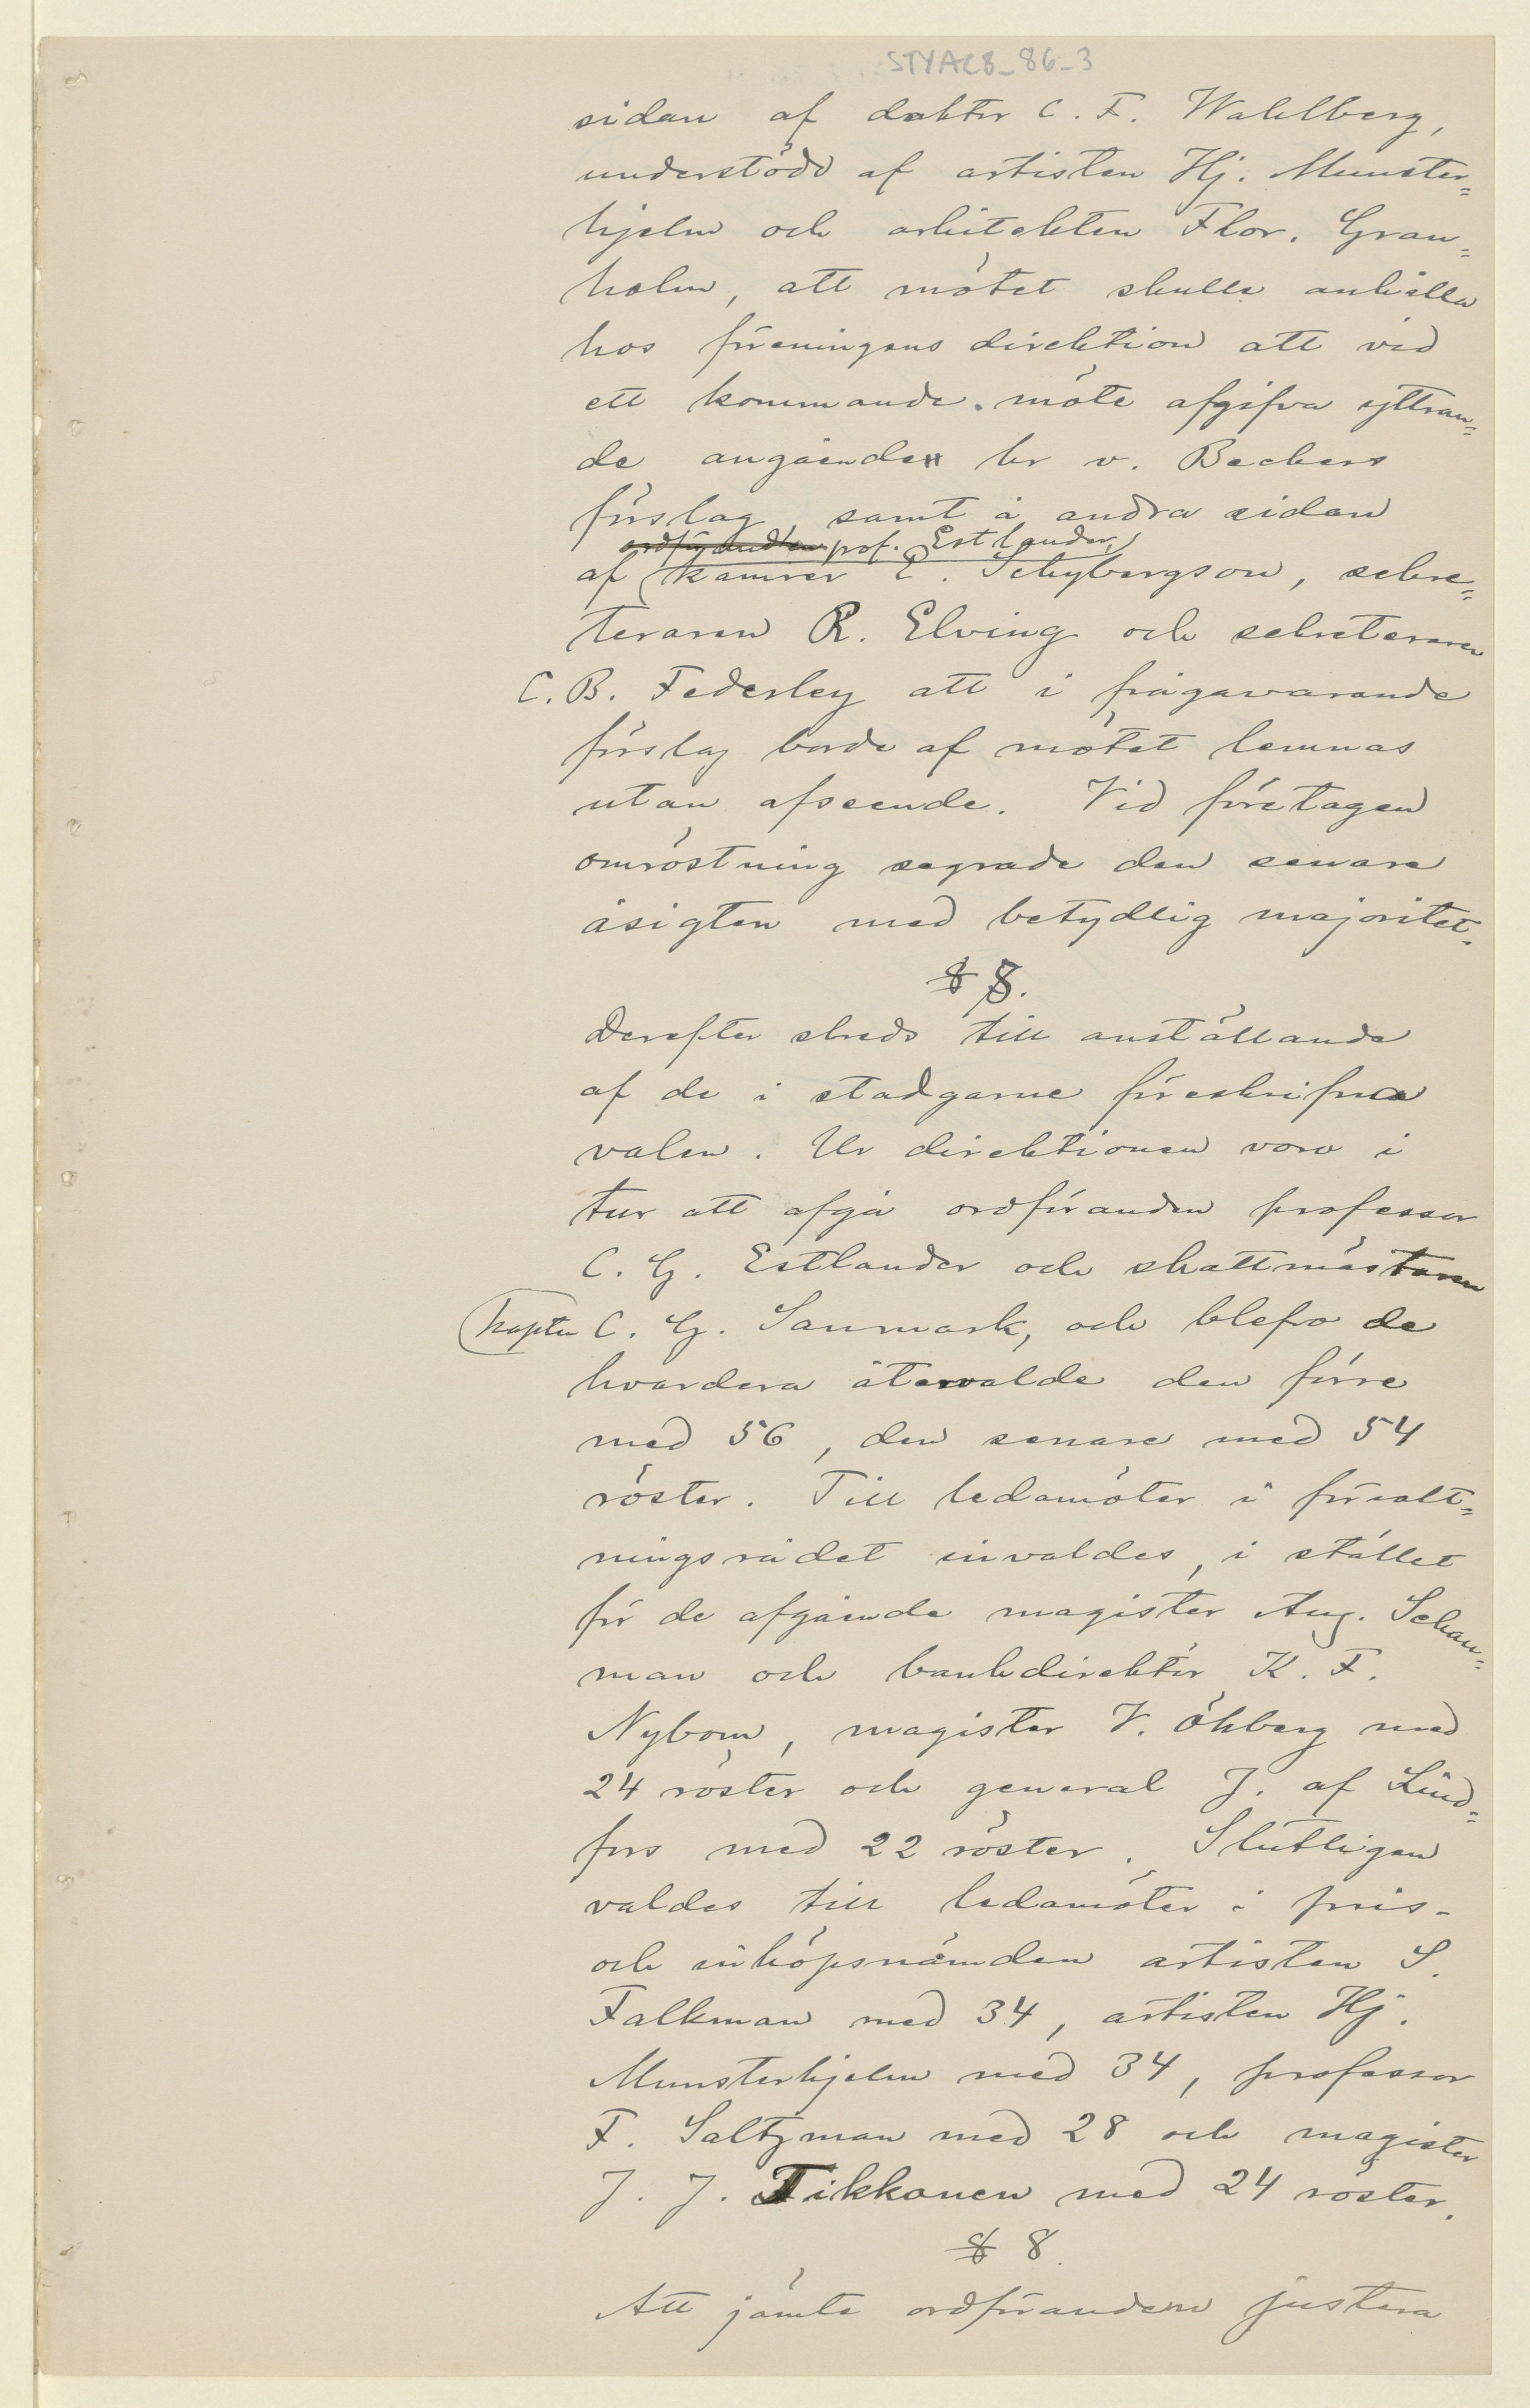 STYAC8_86_3
sidan af doktor C. F. Wahlberg,
understödd af artisten Hj. Munster=
hjelm och arkitekten Flor. Gran=
holm, att mötet skulle anhålla
hos föreningens direktion att vid
ett kommande möte afgifva yttran=
de angående hr v. Beckers
förslag, samt å andra sidan
ordföranden prof. Estlander,
af kamrer E. Schybergson, sekre=
teraren R. Elving och sekreteraren
C. B. Federley att i frågavarande
förslag borde af mötet lemnas
utan afseende. Vid företagen
omröstning segrade den senare
åsigten med betydlig majoritet.
§ 8.
Derefter skreds till anställande
af de i stadgarne föreskrifna
valen. Ur direktionen voro i
tur att afgå ordföranden professor
C. G. Estlander och skattmästaren
kapten C. G. Sanmark, och blefvo de
hvardera återvalde den förre
med 56, den senare med 54
röster. Till ledamöter i förvalt=
ningsrådet invaldes, i stället
för de afgående magister Aug. Schau=
man och bankdirektör K. F.
Nybom, magister V. Öhberg med
24 röster och general J. af Lind=
fors med 22 röster. Slutligen
valdes till ledamöter i pris-
och inköpsnämnden artisten S.
Falkman med 34, artisten Hj.
Munsterhjelm med 34, professor
F. Saltzman med 28 och magister
J. J. Tikkanen med 24 röster.
§ 8.
Att jämte ordföranden justera